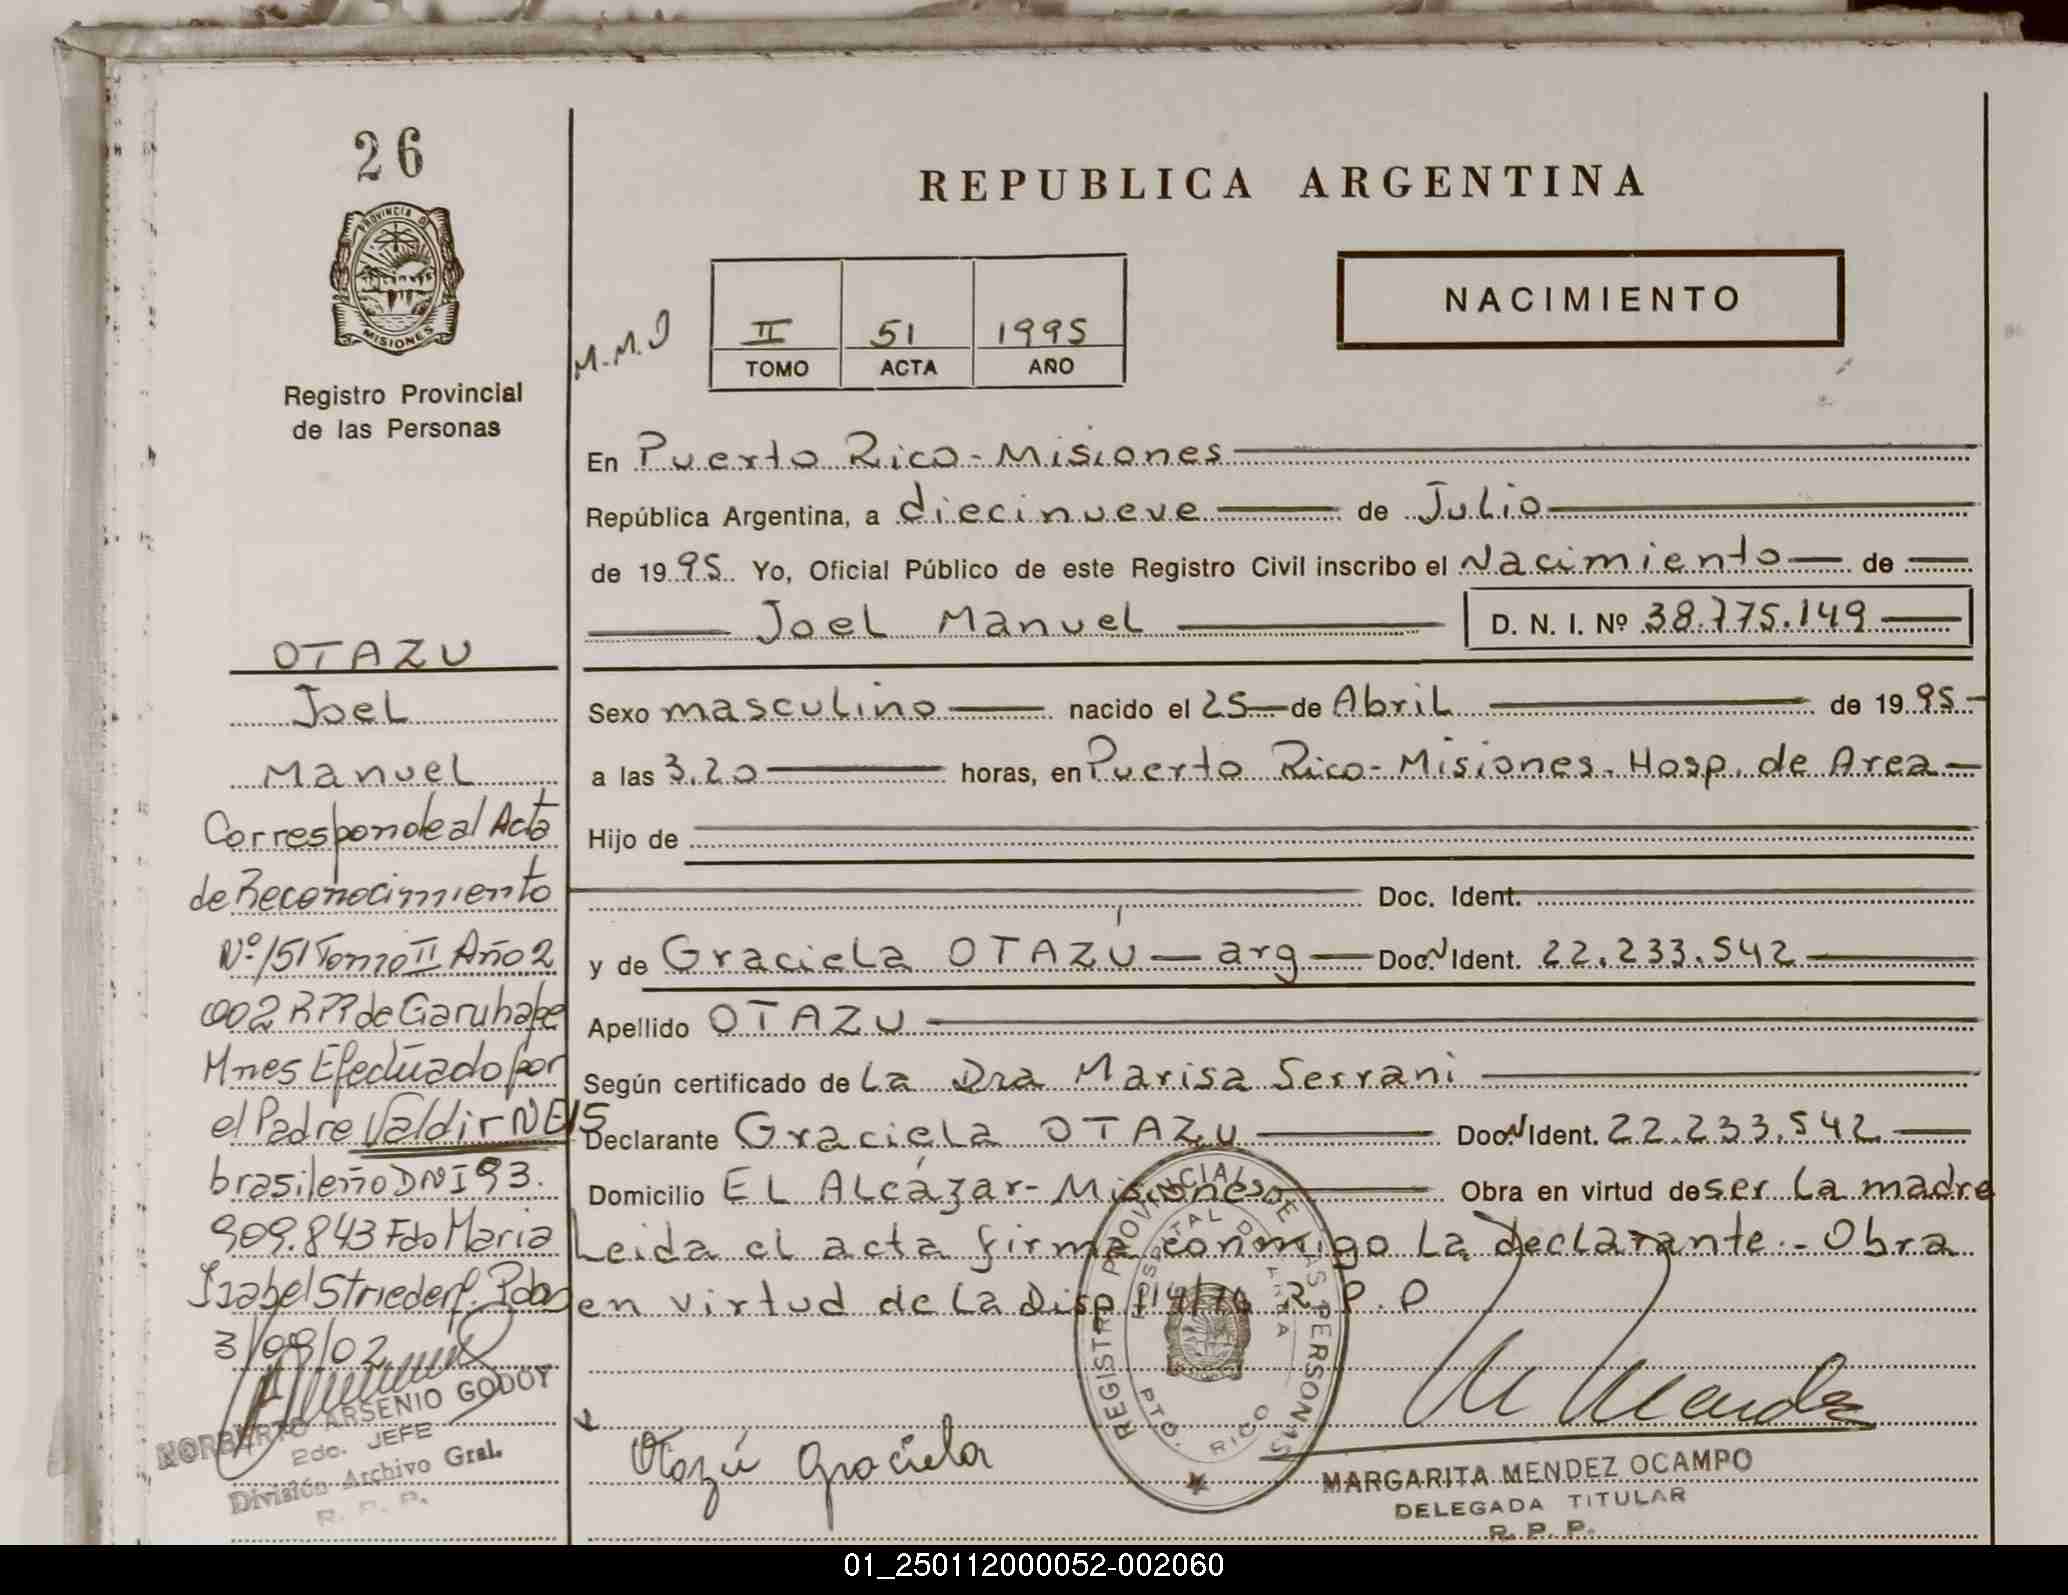 26
PROVINCIA D
MISIONES
Registro Provincial
de las Personas
OTAZU
Joel
Manuel
Corresponde al Acta
de Reconocimiento
Nº 151 Tomo II Año 2
002 RPP de Garuhape
Mnes Efectuado por
el Padre Valdir NEIS
brasileño DNI 93.
909.843 Fdo Maria
Isabel Strieder f. Pdas
3/09/02
NORBERTO ARSENIO GODOY
2do. JEFE
División Archivo Gral.
R. P. P.
REPUBLICA ARGENTINA
M.M.J
II 51 1995
TOMO ACTA AÑO
NACIMIENTO
En Puerto Rico - Misiones
República Argentina, a diecinueve de Julio
de 1995. Yo, Oficial Público de este Registro Civil inscribo el Nacimiento de
Joel Manuel D. N. I. Nº 38.775.149
Sexo masculino nacido el 25 de Abril de 1995
a las 3.20 horas, en Puerto Rico - Misiones. Hosp. de Area
Hijo de
Doc. Ident.
y de Graciela OTAZÚ - arg Doc. N Ident. 22.233.542
Apellido OTAZU
Según certificado de La Dra Marisa Serrani
Declarante Graciela OTAZU Doc. N Ident. 22.233.542
Domicilio EL Alcázar - Misiones Obra en virtud de ser La madre
Leida el acta firma conmigo La declarante. - Obra
en virtud de La Disp R. P. P
REGISTRO PROVINCIAL DE LAS PERSONAS
HOSPITAL DE AREA
PTO. RICO
Otazú Graciela
M Mendez
MARGARITA MENDEZ OCAMPO
DELEGADA TITULAR
R. P. P.
01_250112000052-002060